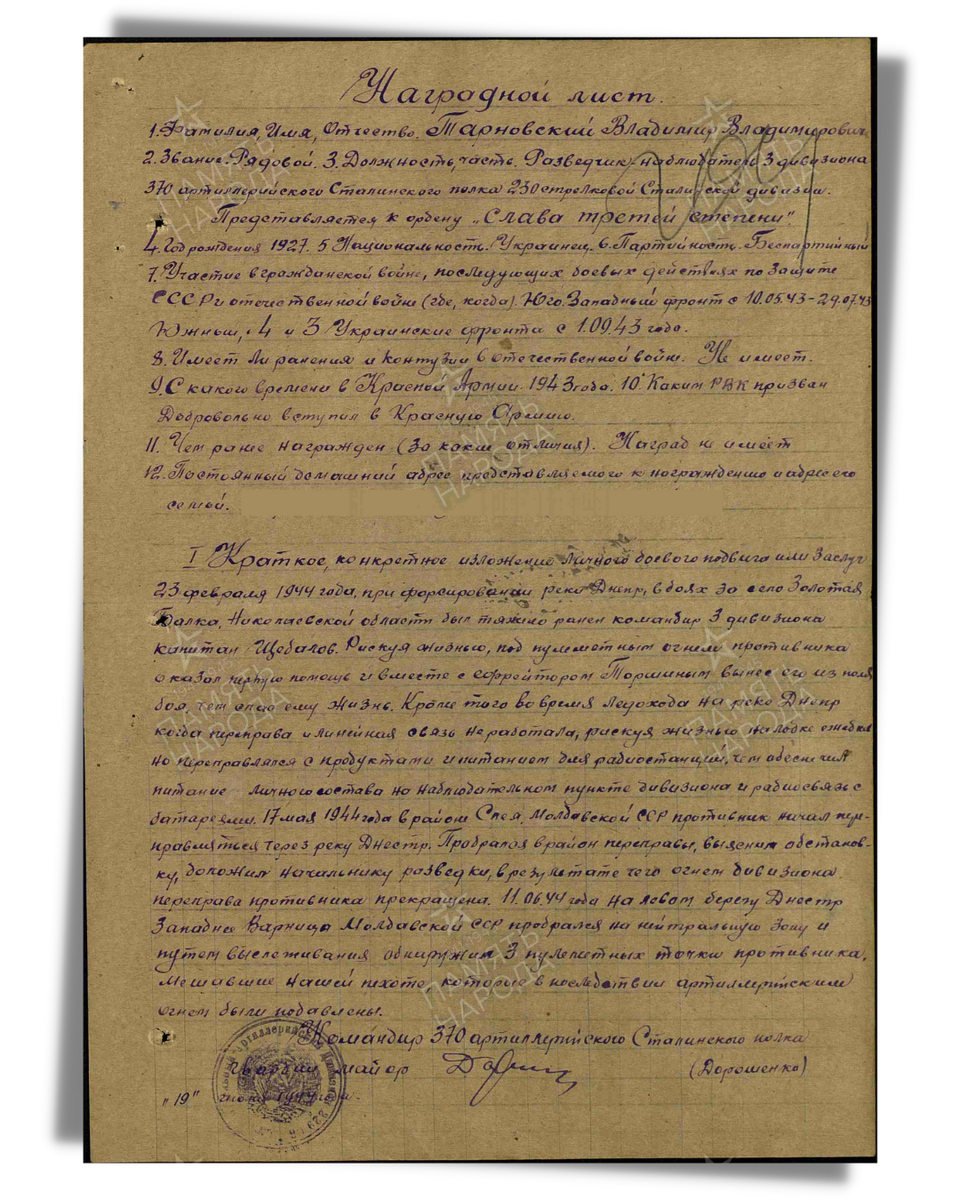 Наградной лист.
1. Фамилия, Имя, Отчество. Тарновский Владимир Владимирович
2. Звание. Рядовой. 3. Должность, часть. Разведчик-наблюдатель 3 дивизиона
370 артиллерийского Сталинского полка 230 стрелковой Сталинской дивизии.
Представляется к ордену „Слава третей степени".
4. Год рождения 1927. 5 Национальность. Украинец. 6. Партийность. Беспартийный
7. Участие в гражданской войне, последующих боевых действиях по защите
СССР и отечественной войне (где, когда). Юго. Западный фронт с 10.05.43-29.07.43
Южный, 4 и 3 Украинские фронта с 1.09.43 года.
8. Имеет ли ранения и контузии в отечественной войне. Не имеет.
9. С какого времени в Красной Армии 1943 года. 10. Каким РВК призван
Добровольно вступил в Красную Армию.
11. Чем ранее награжден (за какие отличия). Наград не имеет
12. Постоянный домашний адрес представляемого к награждению и адрес его
семьи.
I Краткое, конкретное изложение личного боевого подвига или заслуг
23 февраля 1944 года, при форсировании реки Днепр, в боях за село Золотая
Балка, Николаевской области был тяжело ранен командир 3 дивизиона
капитан Щебалов. Рискуя жизнью, под пулеметным огнем противника
оказал первую помощь и вместе с ефрейтором Торшиным вынес его из поля
боя, тем спас ему жизнь. Кроме того во время ледохода на реке Днепр
когда переправа и линейная связь не работала, рискуя жизнью на лодке ежеднев
но переправлялся с продуктами и питанием для радиостанций, чем обеспечил
питание личного состава на наблюдательном пункте дивизиона и радиосвязь с
батареями. 17 мая 1944 года в районе Спея, Молдавской ССР противник начал пере-
правляться через реку Днестр. Пробрался в район переправы, выяснил обстанов-
ку, доложил начальнику разведки, в результате чего огнем дивизиона
переправа противника прекращена. 11.06.44 года на левом берегу Днестр
Западнее Варница Молдавской ССР пробрался на нейтральную зону и
путем выслеживания обнаружил 3 пулеметных точки противника,
мешавшие нашей пехоте, которые в последствии артиллерийским
огнем были подавлены.
Командир 370 артиллерийского Сталинского полка
Гвардии майор (Дорошенко)
„19" июня 1944 года.
ПАМЯТЬ НАРОДА